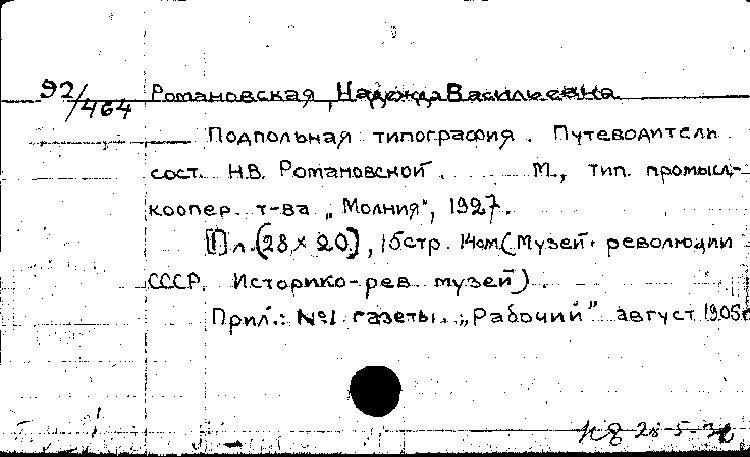 92/464 Романовская, Надежда Васильевна
Подпольная типография. Путеводитель
сост. Н.В. Романовской. М., тип. промысл.-
коопер. т-ва „Молния", 1927.
[1] л. (28 × 20), 16 стр. 14 см (Музей революции
СССР. Историко-рев. музей).
Прил.: №1 газеты „Рабочий" август 1905г
28-5-